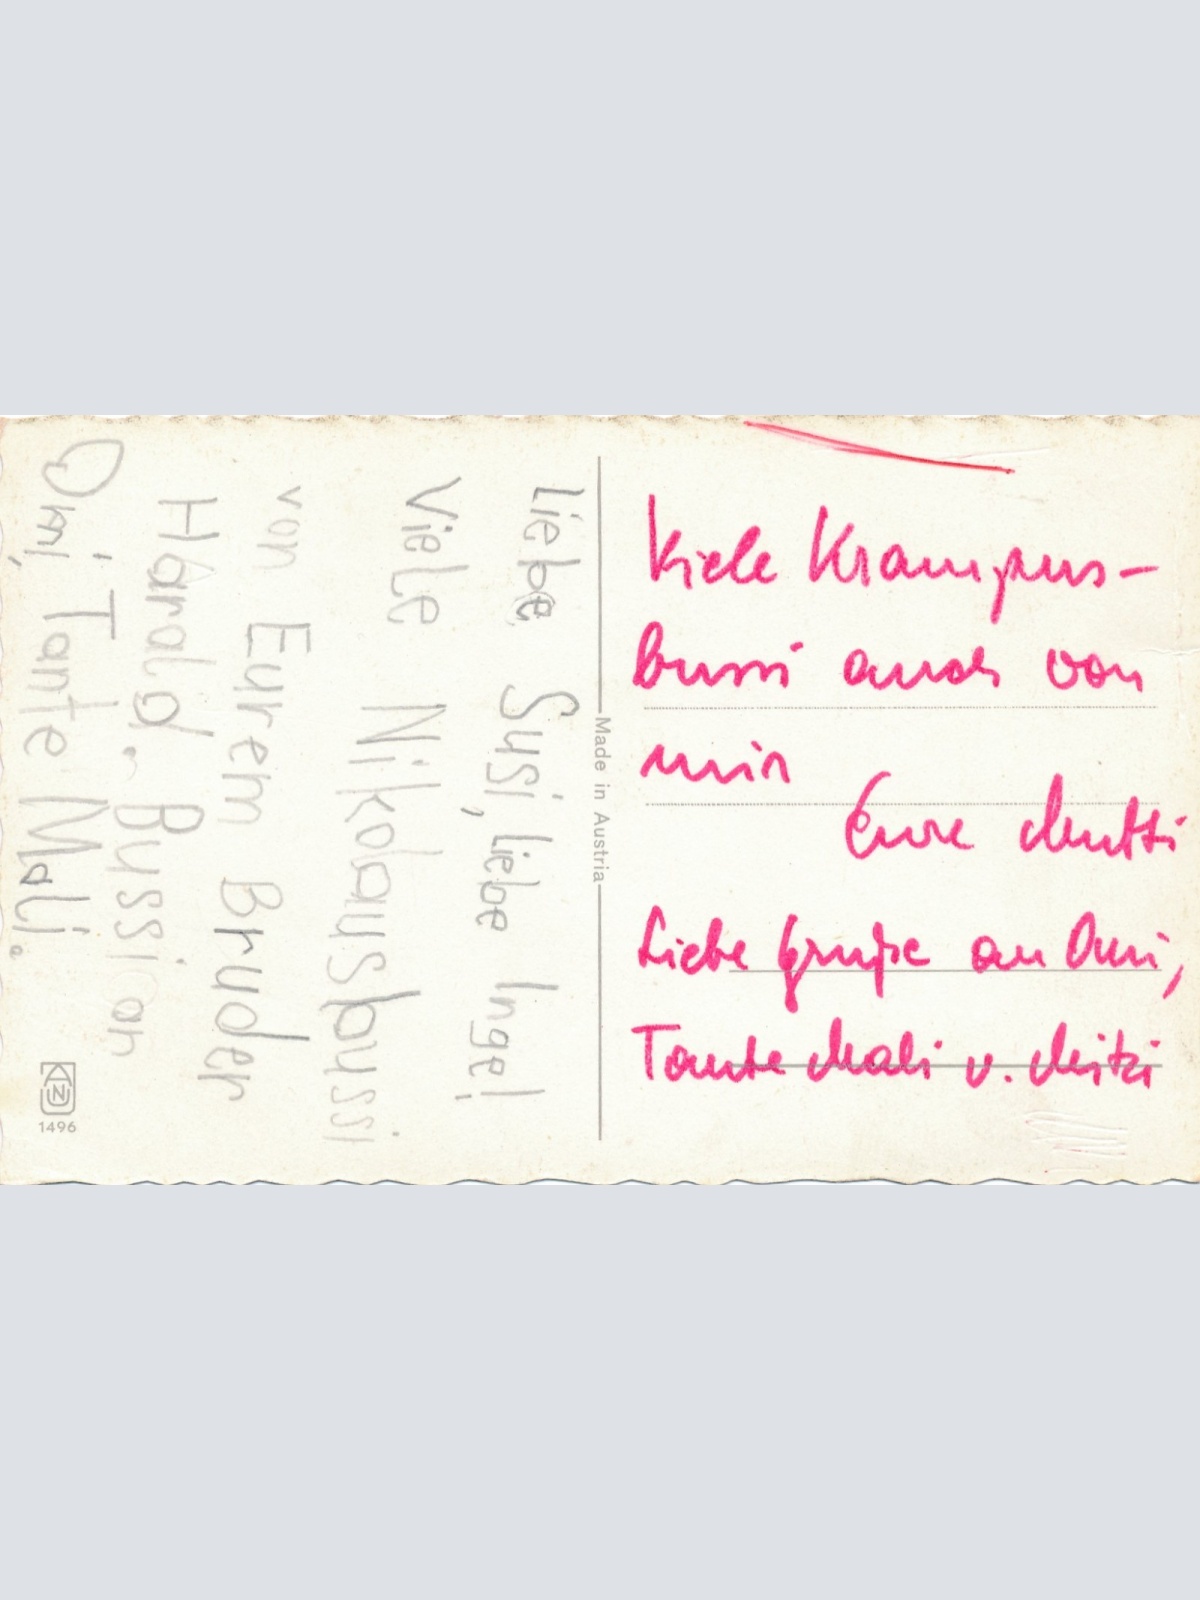 Liebe Susi, Liebe Inge!
Viele Nikolausbussi
von Eurem Bruder
Harald. Bussi an
Omi, Tante Mali.
Made in Austria
Viele Krampus-
bussi auch von
mir
Eure Mutti
Liebe Grüße an Omi,
Tante Mali u. Mitzi
1496